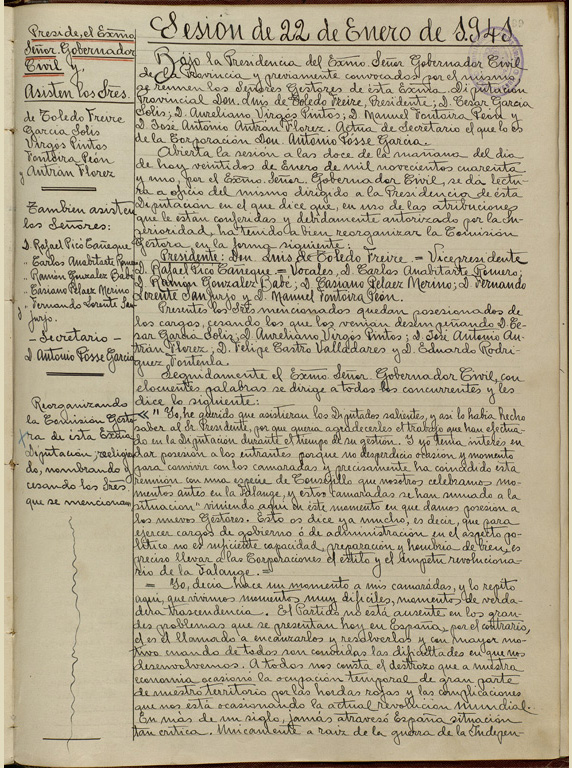 Sesión de 22 de Enero de 1941
Preside, el Exmo
Señor Gobernador
Civil y,
Asisten los Sres.
de Toledo Freire
García Solis
Virgos Pintos
Fontoira Peón
y Antrán Florez
Tambien asisten
los Señores:
D. Rafael Picó Cañeque
" Carlos Anabitarte Romero
" Ramón Gonzalez Babé
" Casiano Pelaez Merino
y " Fernando Lorente San
Jurjo.
- Secretario -
D Antonio Posse García
Reorganizando
la Comisión Gesto
ra de esta Exma
Diputación,
do, nombrando y
cesando los Sres
que se mencionan
Bajo la Presidencia del Exmo. Señor Gobernador Civil
de la Provincia y previamente convocados por el mismo
se reunen los Señores Gestores de esta Exma. Diputación
Provincial Don Luis de Toledo Freire, Presidente; D. Cesar García
Solis; D. Aureliano Virgos Pintos; D. Manuel Fontoira Peón y
D. José Antonio Antrán Florez. Actua de Secretario el que lo es
de la Corporación Don Antonio Posse García.
Abierta la sesión a las doce de la mañana del día
de hoy veintidos de Enero de mil novecientos cuarenta
y uno, por el Exmo. Señor Gobernador Civil, se dá lectu
ra a oficio del mismo dirigido a la Presidencia de ésta
Diputación en el que dice que, en uso de las atribuciones
que le están conferidas y debidamente autorizado por la Su-
perioridad, ha tenido a bien reorganizar la Comisión
Gestora en la forma siguiente:
Presidente: Don Luis de Toledo Freire = Vicepresidente
D. Rafael Picó Cañeque = Vocales, D. Carlos Anabitarte Romero;
D. Ramón Gonzalez Babé; D. Casiano Pelaez Merino; D. Fernando
Lorente San Jurjo y D. Manuel Fontoira Peón.
Presentes los Sres mencionados quedan posesionados de
los cargos, cesando los que los venian desempeñando D. Ce-
sar García Solis; D. Aureliano Virgos Pintos; D. José Antonio An-
trán Florez; D. Felipe Castro Valladares y D. Eduardo Rodri
guez Fontenla.
Seguidamente el Exmo. Señor Gobernador Civil, con
elocuentes palabras se dirige a todos los concurrentes y les
dice lo siguiente:
" Yo, he querido que asistieran los Diputados salientes, y así lo había hecho
saber al Sr. Presidente, por que queria agradecerles el trabajo que han efectua-
do en la Diputación durante el tiempo de su gestión. Y yo tenia interés en
dar posesión a los entrantes porque no desperdicio ocasión y momento
para convivir con los camaradas y precisamente ha coincidido esta
reunión con una especie de Consejillo que nosotros celebramos mo-
mentos antes en la Falange, y estos camaradas se han sumado a la
situacion viniendo aquí en este momento en que damos posesión a
los nuevos Gestores. Esto os dice ya mucho, es decir, que para
ejercer cargos de gobierno ó de administración en el aspecto po-
lítico no es suficiente capacidad, preparación y hombria de bien, es
preciso llevar a las Corporaciones el estilo y el ímpetu revoluciona-
rio de la Falange. =
= Yo, decia hace un momento a mis camaradas, y lo repito
aquí, que vivimos momentos muy dificiles, momentos de verda-
dera trascendencia. El Partido no está ausente en los gran-
des problemas que se presentan hoy en España, por el contrario,
el es el llamado a encauzarlos y resolverlos y con mayor mo-
tivo cuando de todos son conocidas las dificultades en que nos
desenvolvemos. A todos nos consta el destrozo que a nuestra
economia ocasionó la ocupación temporal de gran parte
de nuestro territorio por las hordas rojas y las complicaciones
que nos está ocasionando la actual revolución mundial.
En más de un siglo, jamás atravesó España situación
tan crítica. Unicamente a raiz de la guerra de la Indepen-